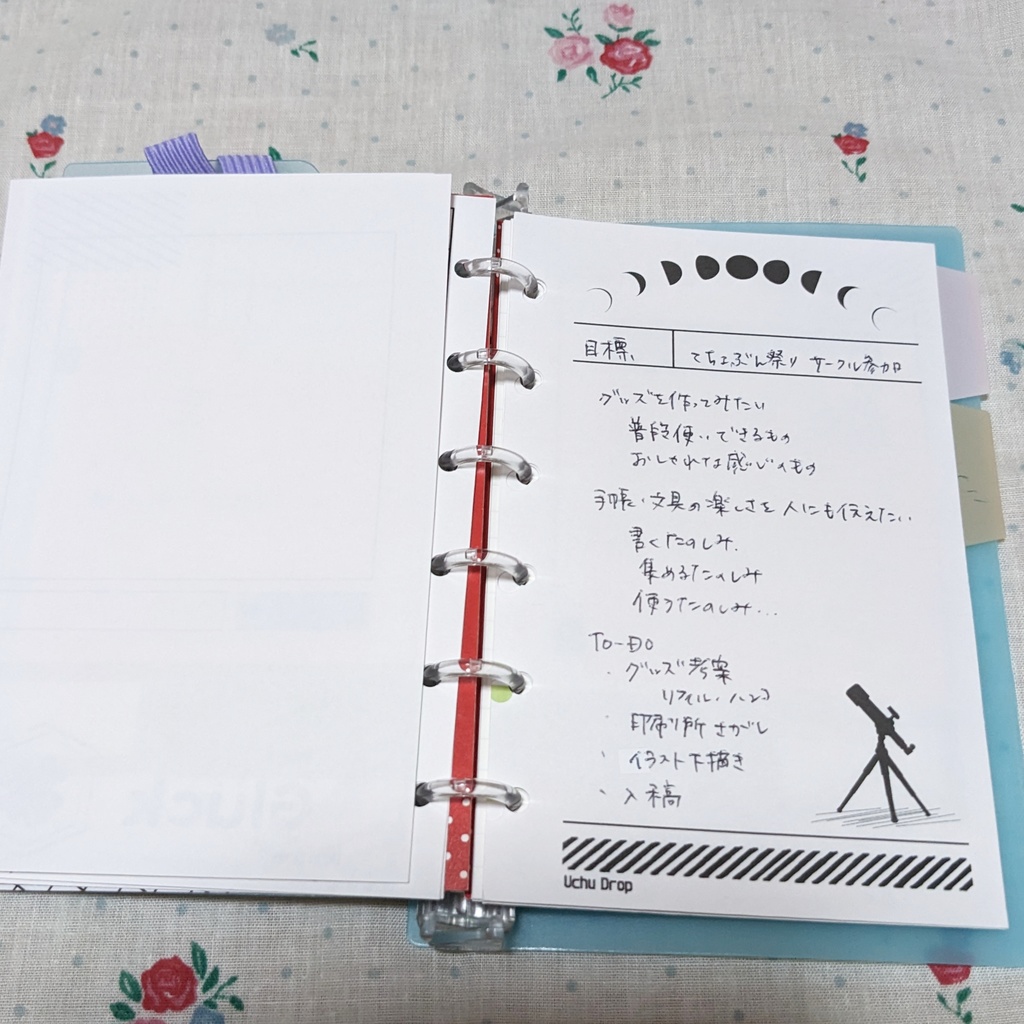 目標、
てちょぶん祭り サークル参加
グッズを作ってみたい
普段使いできるもの
おしゃれな感じのもの
手帳・文具の楽しさを人にも伝えたい
書くたのしみ.
集めるたのしみ
使うたのしみ...
TO-DO
・グッズ考案
リフィル・ハンコ
・印刷所さがし
・イラスト下描き
・入稿
Uchu Drop